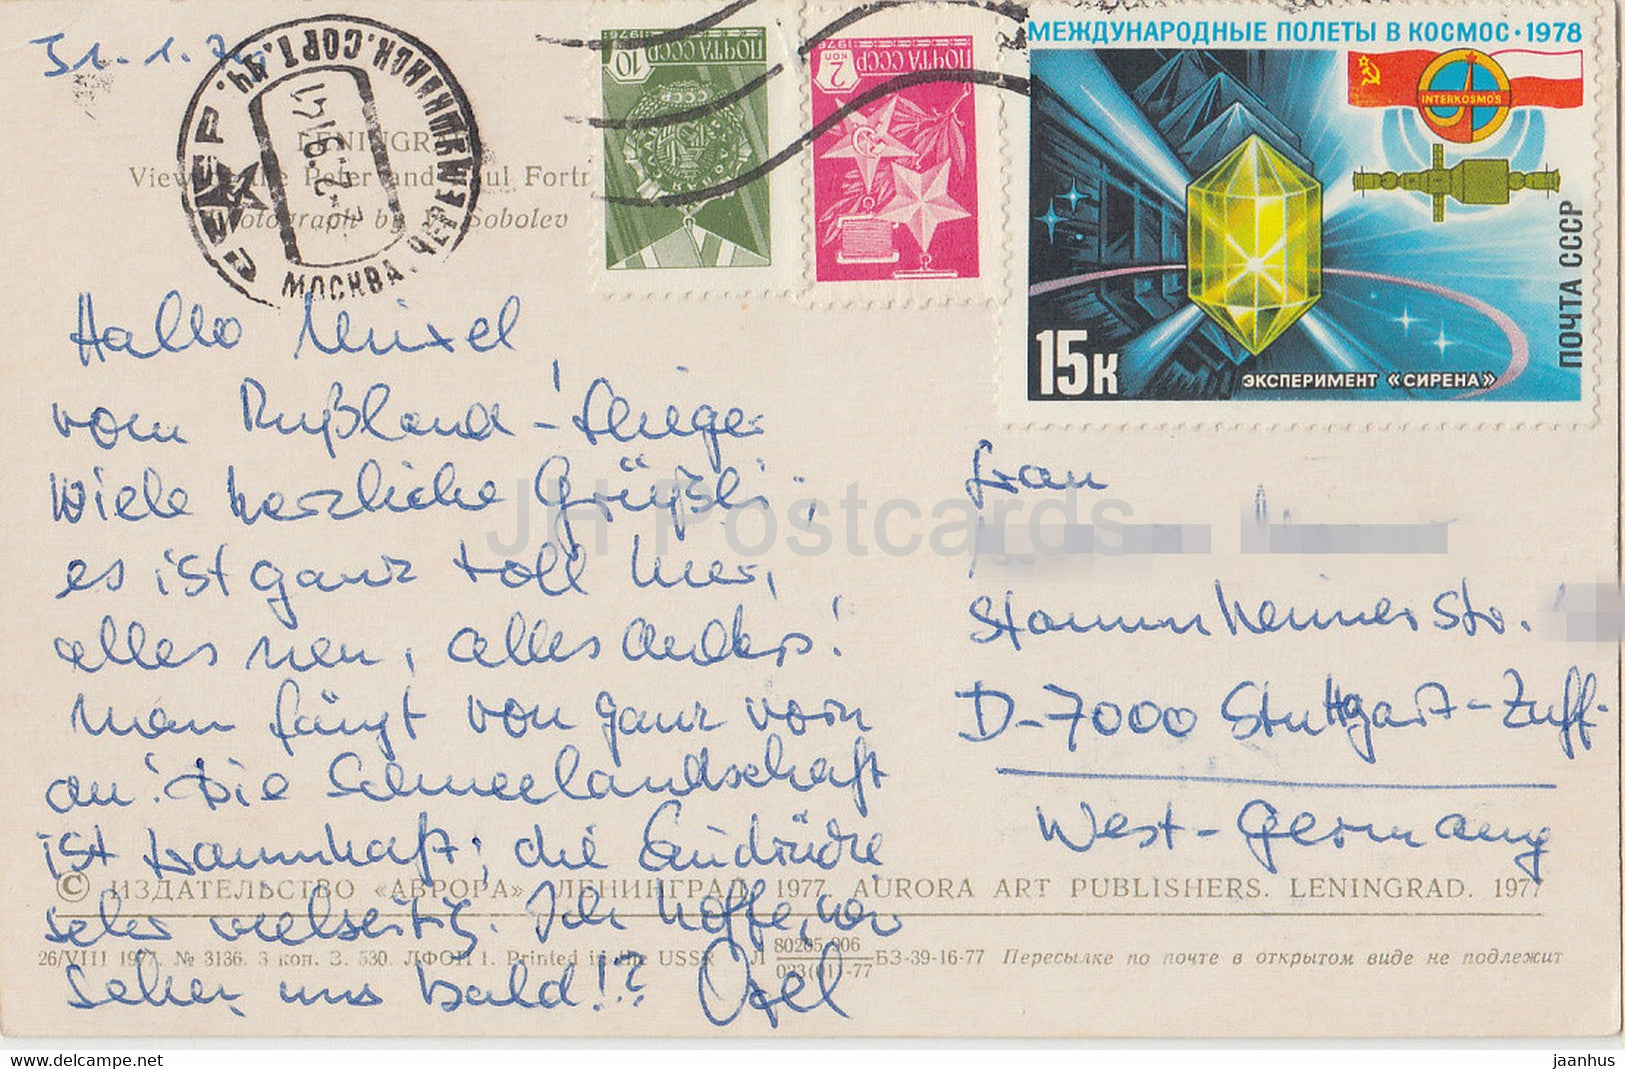 31.1.7
СССР
МОСКВА
СОРТ.
LENINGR
View Peter and ul Fortr
otograph by Sobolev
ПОЧТА СССР
1976
10
ПОЧТА СССР
1976
2 КОП
МЕЖДУНАРОДНЫЕ ПОЛЕТЫ В КОСМОС · 1978
INTERKOSMOS
ПОЧТА СССР
15к
ЭКСПЕРИМЕНТ «СИРЕНА»
Hallo
vom Rußland-Flieger
Viele herzliche Grüßli;
es ist ganz toll hier,
alles neu, alles anders!
Man fängt von ganz vorn
an! Die Schneelandschaft
ist traumhaft; die Eindrücke
sehr vielseitig. Ich hoffe, wir
sehen uns bald!? Axel
Frau
Stammheimerstr.
D-7000 Stuttgart-Zuff.
West-Germany
© ИЗДАТЕЛЬСТВО «АВРОРА». ЛЕНИНГРАД. 1977. AURORA ART PUBLISHERS. LENINGRAD. 1977
26/VIII 1977. № 3136. 3 коп. З. 530. ЛФОП 1. Printed in the USSR Л 80205-906
023(01)-77 БЗ-39-16-77 Пересылке по почте в открытом виде не подлежит
JH Postcards
www.delcampe.net
jaanhus